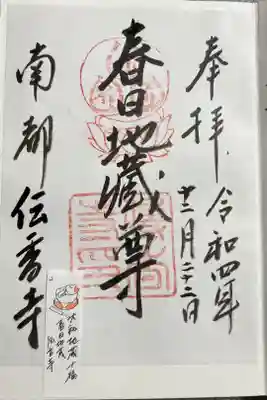 奉拝
令和四年
十二月二十二日
春日地蔵尊
南都伝香寺
大和地蔵十福
春日地蔵
伝香寺